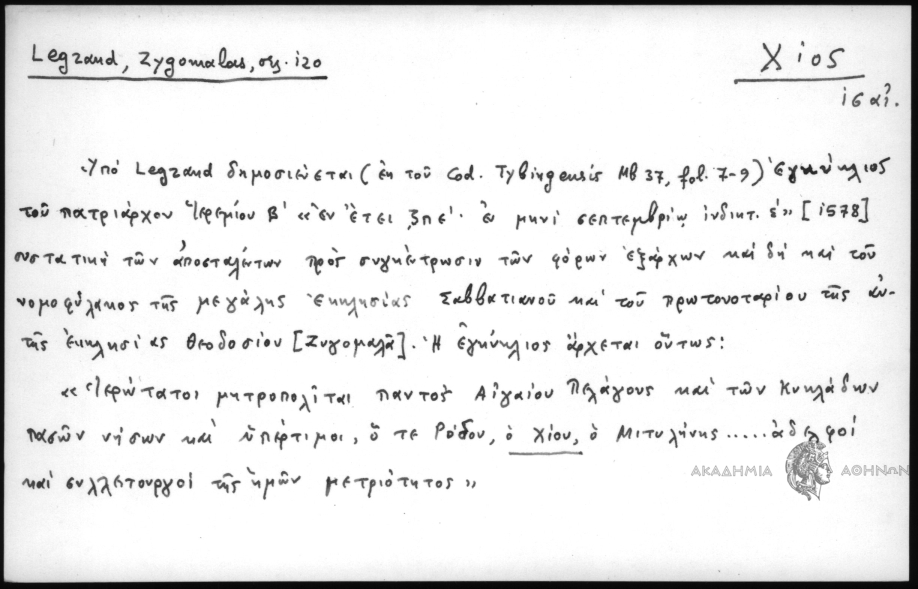 Legrand, Zygomalas, σελ. 120
Χίος
16 αἰ.
Ὑπό Legrand δημοσιεύεται (ἐκ τοῦ Cod. Tybingensis Mb 37, fol. 7-9) ἐγκύκλιος
τοῦ πατριάρχου Ἱερεμίου Β' «ἐν ἔτει ζπε'. ἐν μηνί σεπτεμβρίῳ ἰνδικτ. ε'» [1578]
συστατική τῶν ἀποσταλέντων πρός συγκέντρωσιν τῶν φόρων ἐξάρχων καί δή καί τοῦ
νομοφύλακος τῆς μεγάλης ἐκκλησίας Σαββατιανοῦ καί τοῦ πρωτονοταρίου τῆς αὐ-
τῆς ἐκκλησίας Θεοδοσίου [Ζυγομαλᾶ]. Ἡ ἐγκύκλιος ἄρχεται οὕτως:
«Ἱερώτατοι μητροπολῖται παντός Αἰγαίου Πελάγους καί τῶν Κυκλάδων
πασῶν νήσων καί ὑπέρτιμοι, ὅ τε Ρόδου, ὁ Χίου, ὁ Μιτυλήνης.....ἀδελφοί
καί συλλειτουργοί τῆς ἡμῶν μετριότητος»
ΑΚΑΔΗΜΙΑ ΑΘΗΝΩΝ